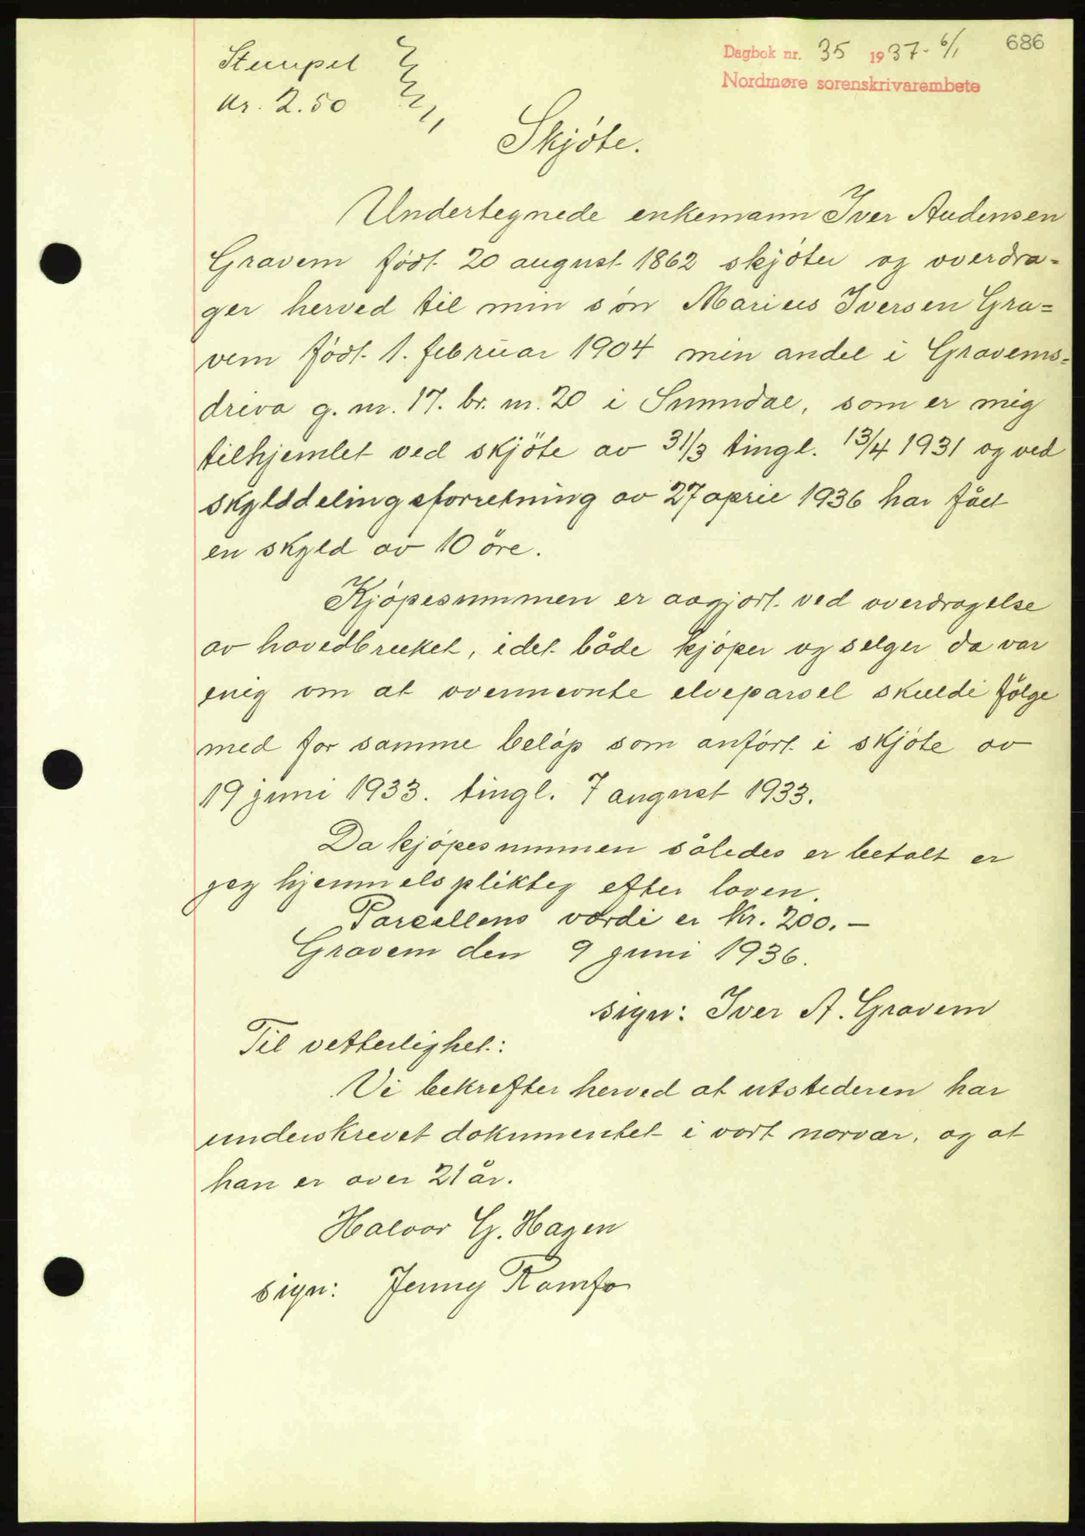 686
Dagbok nr. 35 1937-6/1
Nordmøre sorenskrivarembete
Stempel
kr. 2.50
Skjöte.
Undertegnede enkemann Iver Audensen
Gravem födt 20 august 1862 skjöter og overdra-
ger herved til min sön Marius Iversen Gra=
vem födt 1. februar 1904 min andel i Gravems-
driva g. nr. 17. br. nr. 20 i Sunndal, som er mig
tilhjemlet ved skjöte av 31/3 tingl. 13/4 1931 og ved
skylddelingsforretning av 27 april 1936 har fået
en skyld av 10 öre.
Kjöpesummen er avgjort ved overdragelse
av hovedbruket, idet både kjöper og selger da var
enig om at overnevnte elveparsel skulde fölge
med for samme belöp som anfört i skjöte av
19 juni 1933. tingl. 7 august 1933.
Da kjöpesummen således er betalt er
jeg hjemmelspliktig efter loven.
Parsellens verdi er kr. 200.-
Gravem den 9 juni 1936.
sign: Iver A. Gravem
Til vetterlighet:
Vi bekrefter herved at utstederen har
underskrevet dokumentet i vort nærvær, og at
han er over 21 år.
Halvor G. Hagen
sign: Jenny Romfo